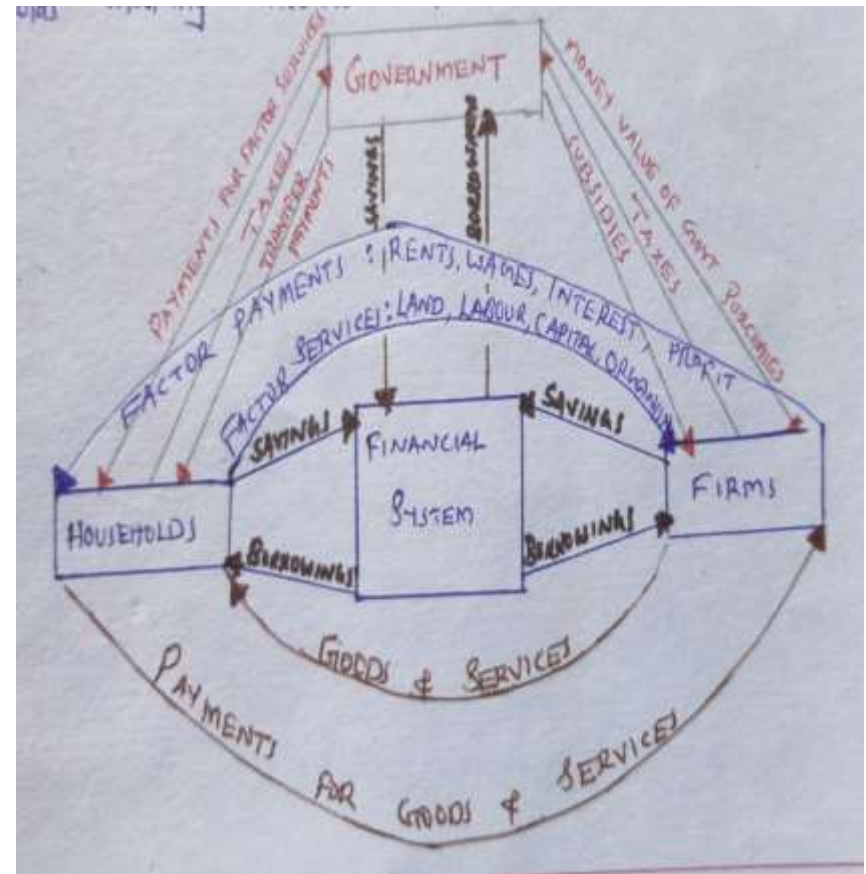 GOVERNMENT
PAYMENTS FOR FACTOR SERVICES
TAXES
TRANSFER
PAYMENTS
SAVINGS
BORROWINGS
SUBSIDIES
TAXES
MONEY VALUE OF GOVT PURCHASES
FACTOR PAYMENTS : RENTS, WAGES, INTEREST, PROFIT
FACTOR SERVICES: LAND, LABOUR, CAPITAL,
SAVINGS
SAVINGS
FINANCIAL
SYSTEM
HOUSEHOLDS
FIRMS
BORROWINGS
BORROWINGS
GOODS & SERVICES
PAYMENTS FOR GOODS & SERVICES